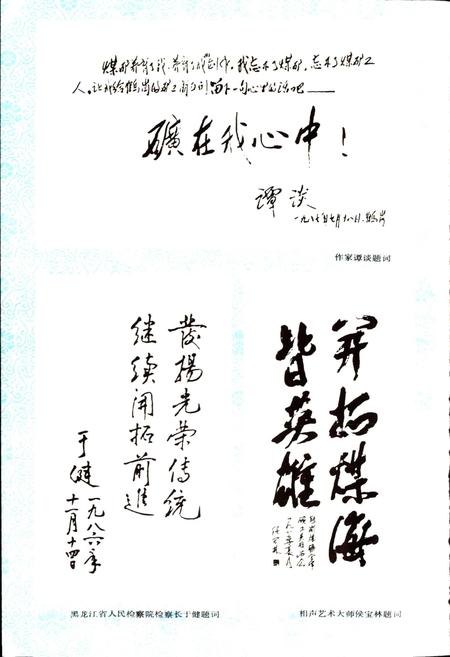 煤矿养育了我,养育了我创作。我忘不了煤矿,忘不了煤矿工
人。让我给鹤岗的矿工朋友们留下一句心里的话吧——
礦在我心中!
谭谈
一九八七年七月十八日.鹤岗
作家谭谈题词
發揚光荣传統
继续开拓前進
于健 一九八六年
十一月十四日
黑龙江省人民检察院检察长于健题词
开拓煤海
皆英雄
相声艺术大师侯宝林题词